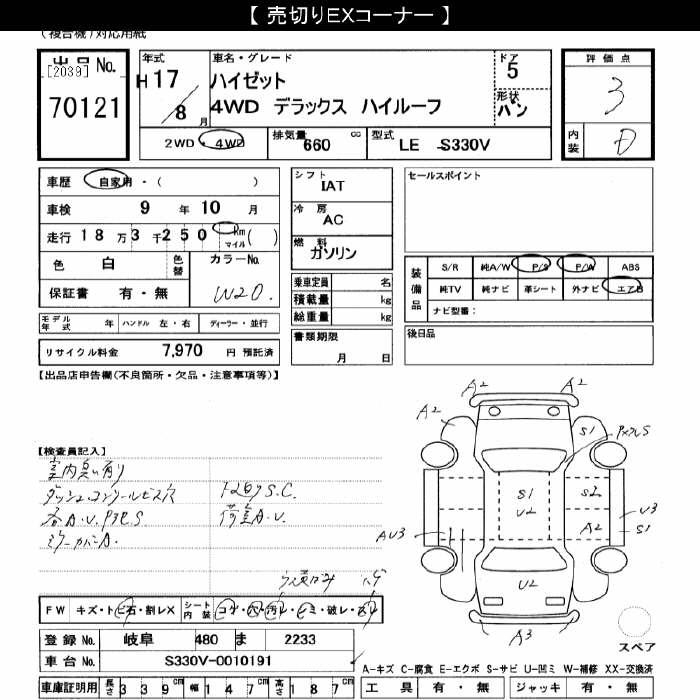 【 売切りEXコーナー 】
(複合機)対応用紙
出品 No.
[2039]
70121
年式
H 17
8 月
車名・グレード
ハイゼット
4WD デラックス ハイルーフ
ドア
5
形状
バン
評価点
3
内装
D
2WD・4WD
排気量 660 cc
型式 LE -S330V
車歴 自家用・( )
車検 9 年 10 月
走行 18 万 3 千 250 Km マイル( )
色 白 色替 カラーNo.
W20.
保証書 有・無
モデル年式 年 ハンドル 左・右 ディーラー・並行
リサイクル料金 7,970 円 預託済
シフト
IAT
冷房
AC
燃料
ガソリン
乗車定員 名
積載量 kg
総重量 kg
書類期限
月 日
セールスポイント
装備品
S/R 純A/W P/S P/W ABS
純TV 純ナビ 革シート 外ナビ エアB
ナビ型番:
後日品
【出品店申告欄(不良箇所・欠品・注意事項等)】
【検査員記入】
室内臭い有り
A.V.
S.C.
荷室A.V.
A2
A2
A2
S1
S1
U2
S2
A2
U3
S1
AU3
U2
A3
スペア
FW キズ・トビ石・割レX シート内装 コゲ・穴・汚レ・シミ・破レ・スレ
登録 No. 岐阜 480 ま 2233
車台 No. S330V-0010191
車庫証明用 長さ 339cm 幅 147cm 高さ 187cm
A-キズ C-腐食 E-エクボ S-サビ U-凹ミ W-補修 XX-交換済
工具 有・無 ジャッキ 有・無